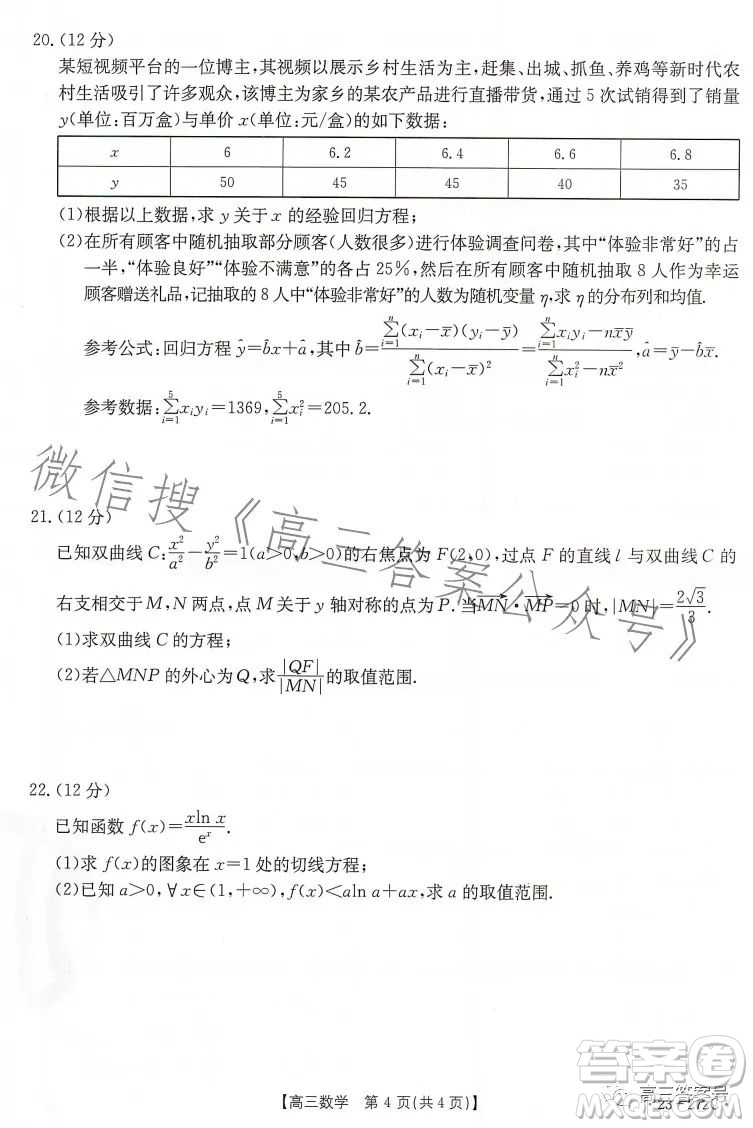 20.(12 分)
某短视频平台的一位博主,其视频以展示乡村生活为主,赶集、出城、抓鱼、养鸡等新时代农
村生活吸引了许多观众,该博主为家乡的某农产品进行直播带货,通过 5 次试销得到了销量
y(单位:百万盒)与单价 x(单位:元/盒)的如下数据:
x 6 6.2 6.4 6.6 6.8
y 50 45 45 40 35
(1)根据以上数据,求 y 关于 x 的经验回归方程;
(2)在所有顾客中随机抽取部分顾客(人数很多)进行体验调查问卷,其中“体验非常好”的占
一半,“体验良好”“体验不满意”的各占 25%,然后在所有顾客中随机抽取 8 人作为幸运
顾客赠送礼品,记抽取的 8 人中“体验非常好”的人数为随机变量 η,求 η 的分布列和均值.
参考公式:回归方程 ŷ=b̂x+â,其中 b̂=\frac{\sum_{i=1}^{n}(x_i-x̄)(y_i-ȳ)}{\sum_{i=1}^{n}(x_i-x̄)^2}=\frac{\sum_{i=1}^{n}x_iy_i-nx̄ȳ}{\sum_{i=1}^{n}x_i^2-nx̄^2},â=ȳ-b̂x̄.
参考数据:\sum_{i=1}^{5}x_iy_i=1369,\sum_{i=1}^{5}x_i^2=205.2.
微信搜《高三答案公众号》
21.(12 分)
已知双曲线 C:\frac{x^2}{a^2}-\frac{y^2}{b^2}=1(a>0,b>0)的右焦点为 F(2,0),过点 F 的直线 l 与双曲线 C 的
右支相交于 M,N 两点,点 M 关于 y 轴对称的点为 P.当\overrightarrow{MN}·\overrightarrow{MP}=0 时,|MN|=\frac{2\sqrt{3}}{3}.
(1)求双曲线 C 的方程;
(2)若△MNP 的外心为 Q,求\frac{|QF|}{|MN|}的取值范围.
22.(12 分)
已知函数 f(x)=\frac{xln x}{e^x}.
(1)求 f(x)的图象在 x=1 处的切线方程;
(2)已知 a>0,∀x∈(1,+∞),f(x)<aln a+ax,求 a 的取值范围.
【高三数学 第 4 页(共 4 页)】
高三答案号
答案卷
MXQE.COM